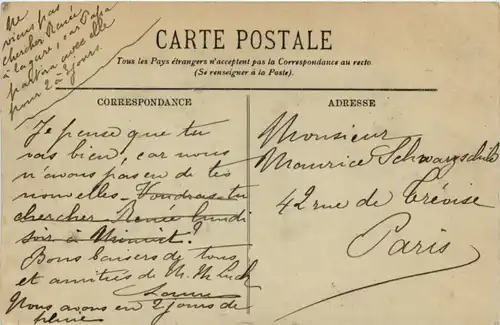 Ne
viens pas
chercher Renée
à la gare, car Papa
partira avec elle
pour 2 à 3 jours.
CARTE POSTALE
Tous les Pays étrangers n'acceptent pas la Correspondance au recto
(Se renseigner à la Poste).
CORRESPONDANCE
Je pense que tu
vas bien, car nous
n'avons pas eu de tes
nouvelles - Voudras-tu
chercher Renée lundi
soir à Minuit?
Bons baisers de tous
et amitiés de M. Mh
Nous avons eu 2 jours de
pluie
ADRESSE
Monsieur
Maurice Schwarzschild
42 rue de Trévise
Paris